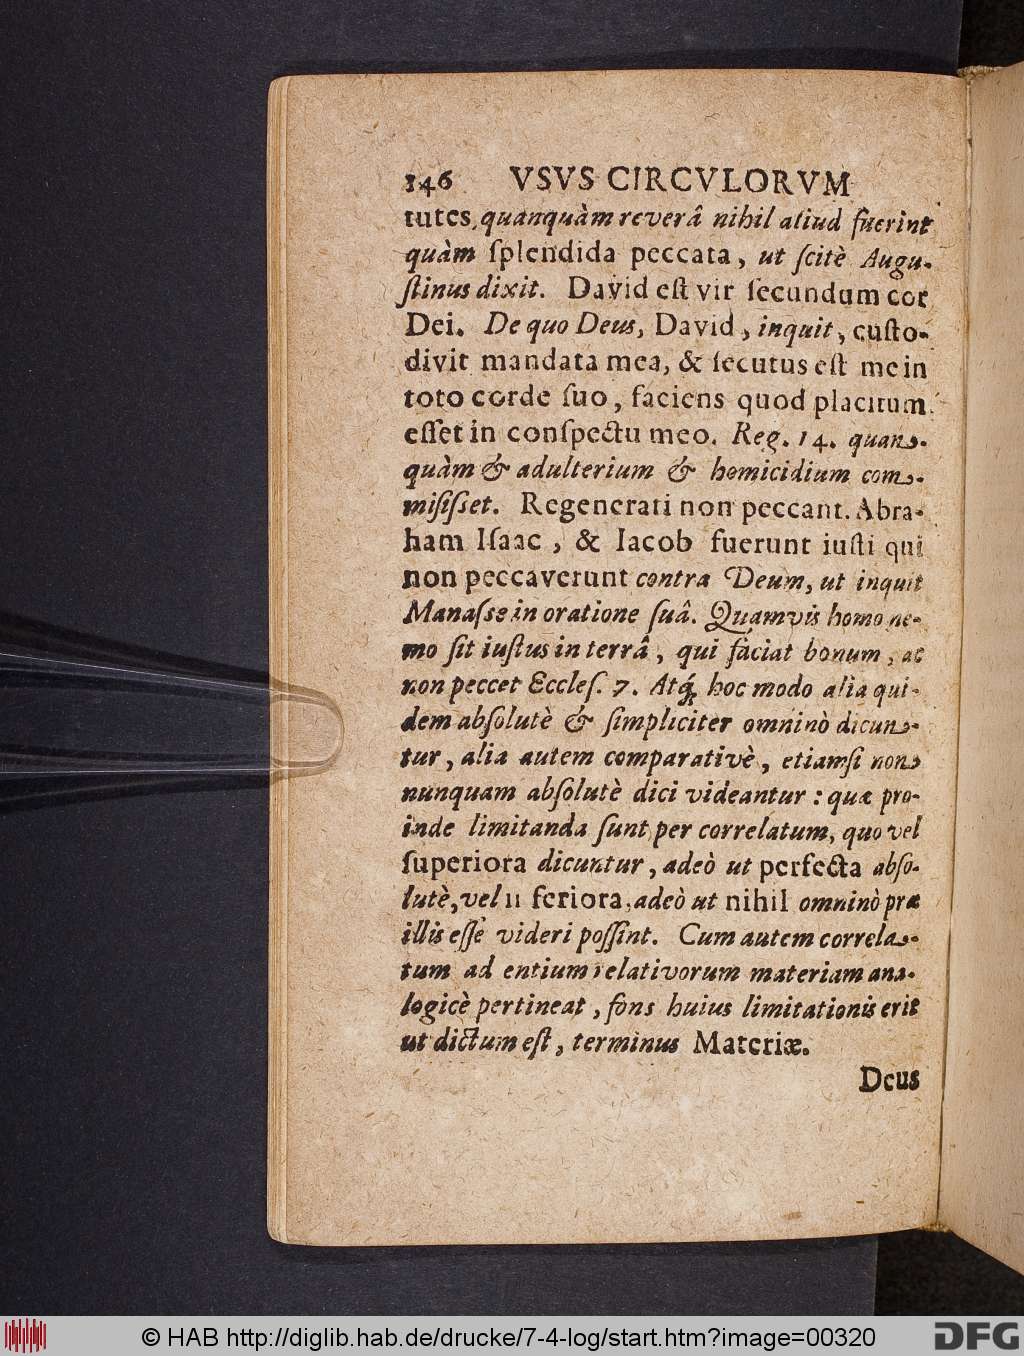 146 VSVS CIRCVLORVM
tutes, quanquàm reverâ nihil aliud fuerint
quàm ſplendida peccata, ut ſcitè Augu-
ſtinus dixit. David eſt vir ſecundum cor
Dei. De quo Deus, David, inquit, cuſto-
divit mandata mea, & ſecutus eſt me in
toto corde ſuo, faciens quod placitum
eſſet in conſpectu meo. Reg. 14. quan-
quàm & adulterium & homicidium com-
miſiſſet. Regenerati non peccant. Abra-
ham Iſaac, & Iacob fuerunt iuſti qui
non peccaverunt contra Deum, ut inquit
Manaſse in oratione ſuâ. Quamvis homo ne-
mo ſit iuſtus in terrâ, qui faciat bonum, ac
non peccet Eccleſ. 7. Atq́; hoc modo alia qui-
dem abſolutè & ſimpliciter omninò dicun-
tur, alia autem comparativè, etiamſi non
nunquam abſolutè dici videantur: quæ pro-
inde limitanda ſunt per correlatum, quo vel
ſuperiora dicuntur, adeò ut perfecta abſo-
lutè, vel feriora, adeò ut nihil omninò præ
illis eſſe videri poſſint. Cum autem correla-
tum ad entium relativorum materiam ana-
logicè pertineat, fons huius limitationis erit
ut dictum eſt, terminus Materiæ.
Deus
© HAB http://diglib.hab.de/drucke/7-4-log/start.htm?image=00320
DFG